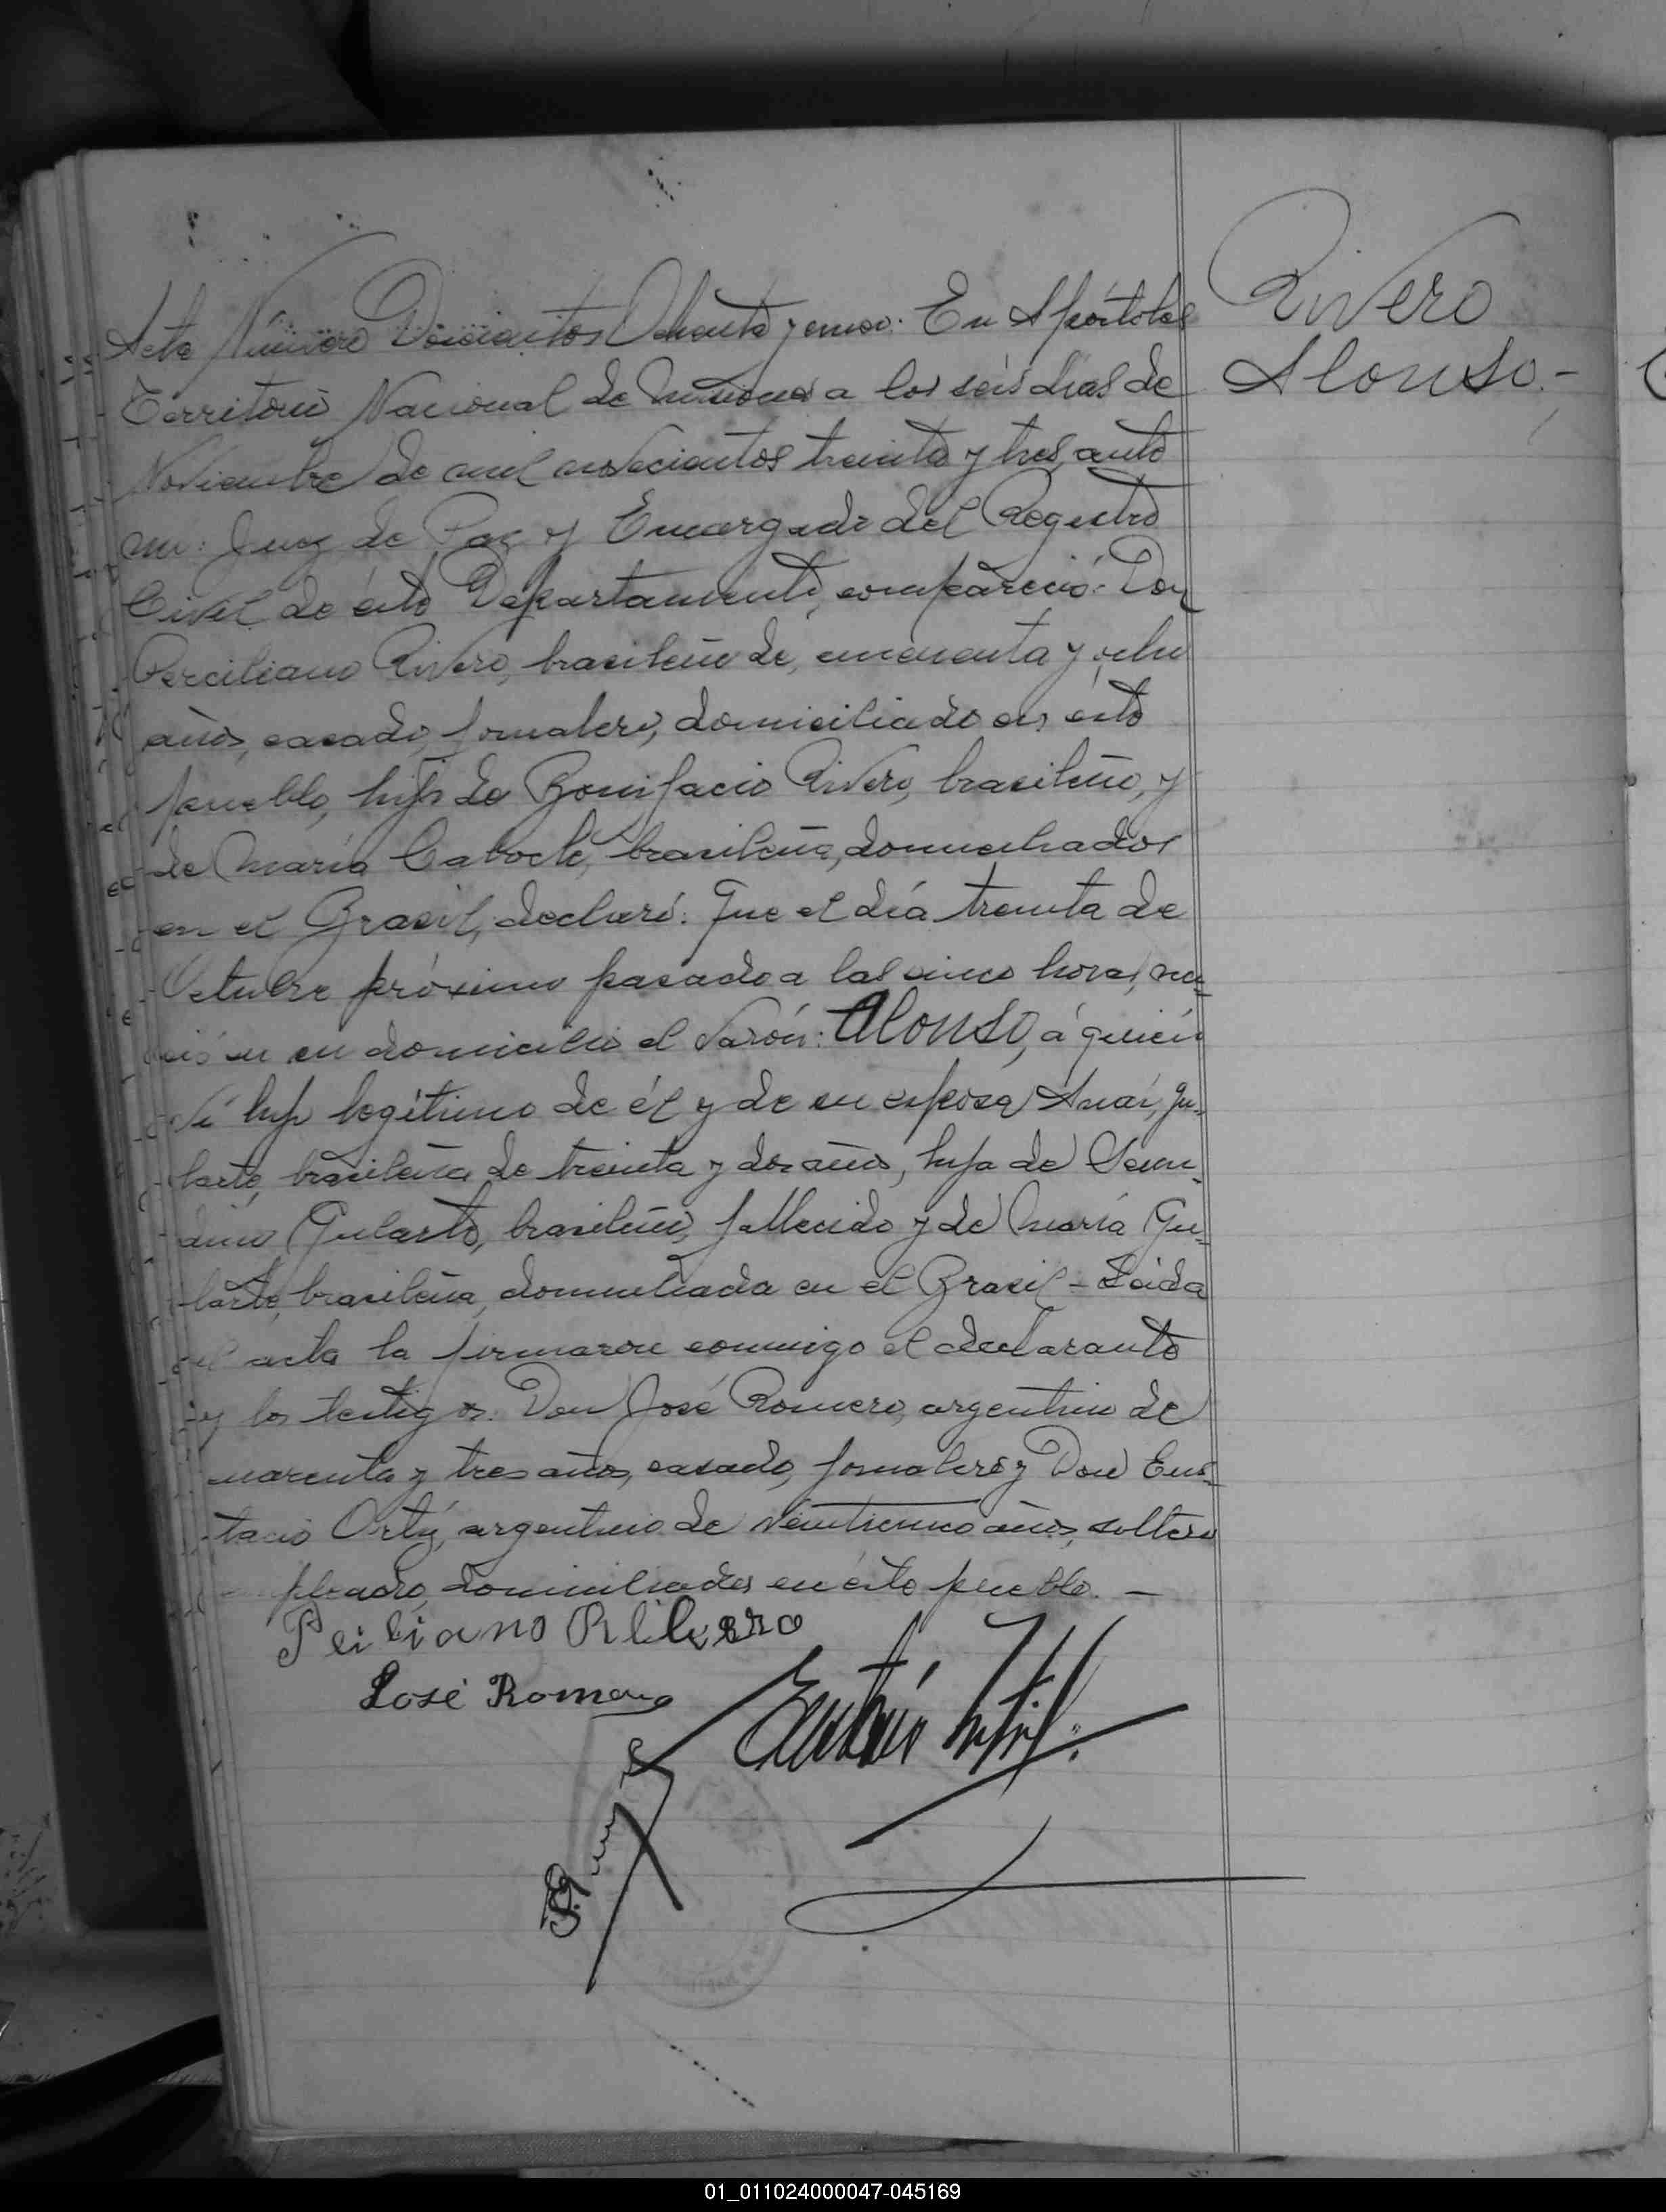 Rivero
Alonso.-
Acta Número Doscientos Ochenta y cinco: En Apóstoles
Territorio Nacional de Misiones a los seis dias de
Noviembre de mil novecientos treinta y tres, ante
mi: Juez de Paz y Encargado del Registro
Civil de éste Departamento, compareció: Don
Perciliano Rivero, brasileño de, cincuenta y ocho
años, casado, jornalero, domiciliado en éste
pueblo, hijo de Bonifacio Rivero, brasileño, y
de María, brasileña, domiciliados
en el Brasil, declaró: Que el día treinta de
Octubre próximo pasado a las cinco horas, na-
ció en su domicilio el varón: Alonso, á quien
hijo legítimo de él y de su esposa Anaí, Gu-
larte, brasileña de treinta y dos años, hija de
Gularte, brasileño, fallecido y de María Gu-
larte, brasileña, domiciliada en el Brasil - Leida
el acta la firmaron conmigo el declarante
y los testigos. Don José Romero, argentino de
cuarenta y tres años, casado, jornalero y Don Eus-
tacio Ortiz, argentino de veinticinco años, soltero
empleado, domiciliados en éste pueblo. -
José Romero